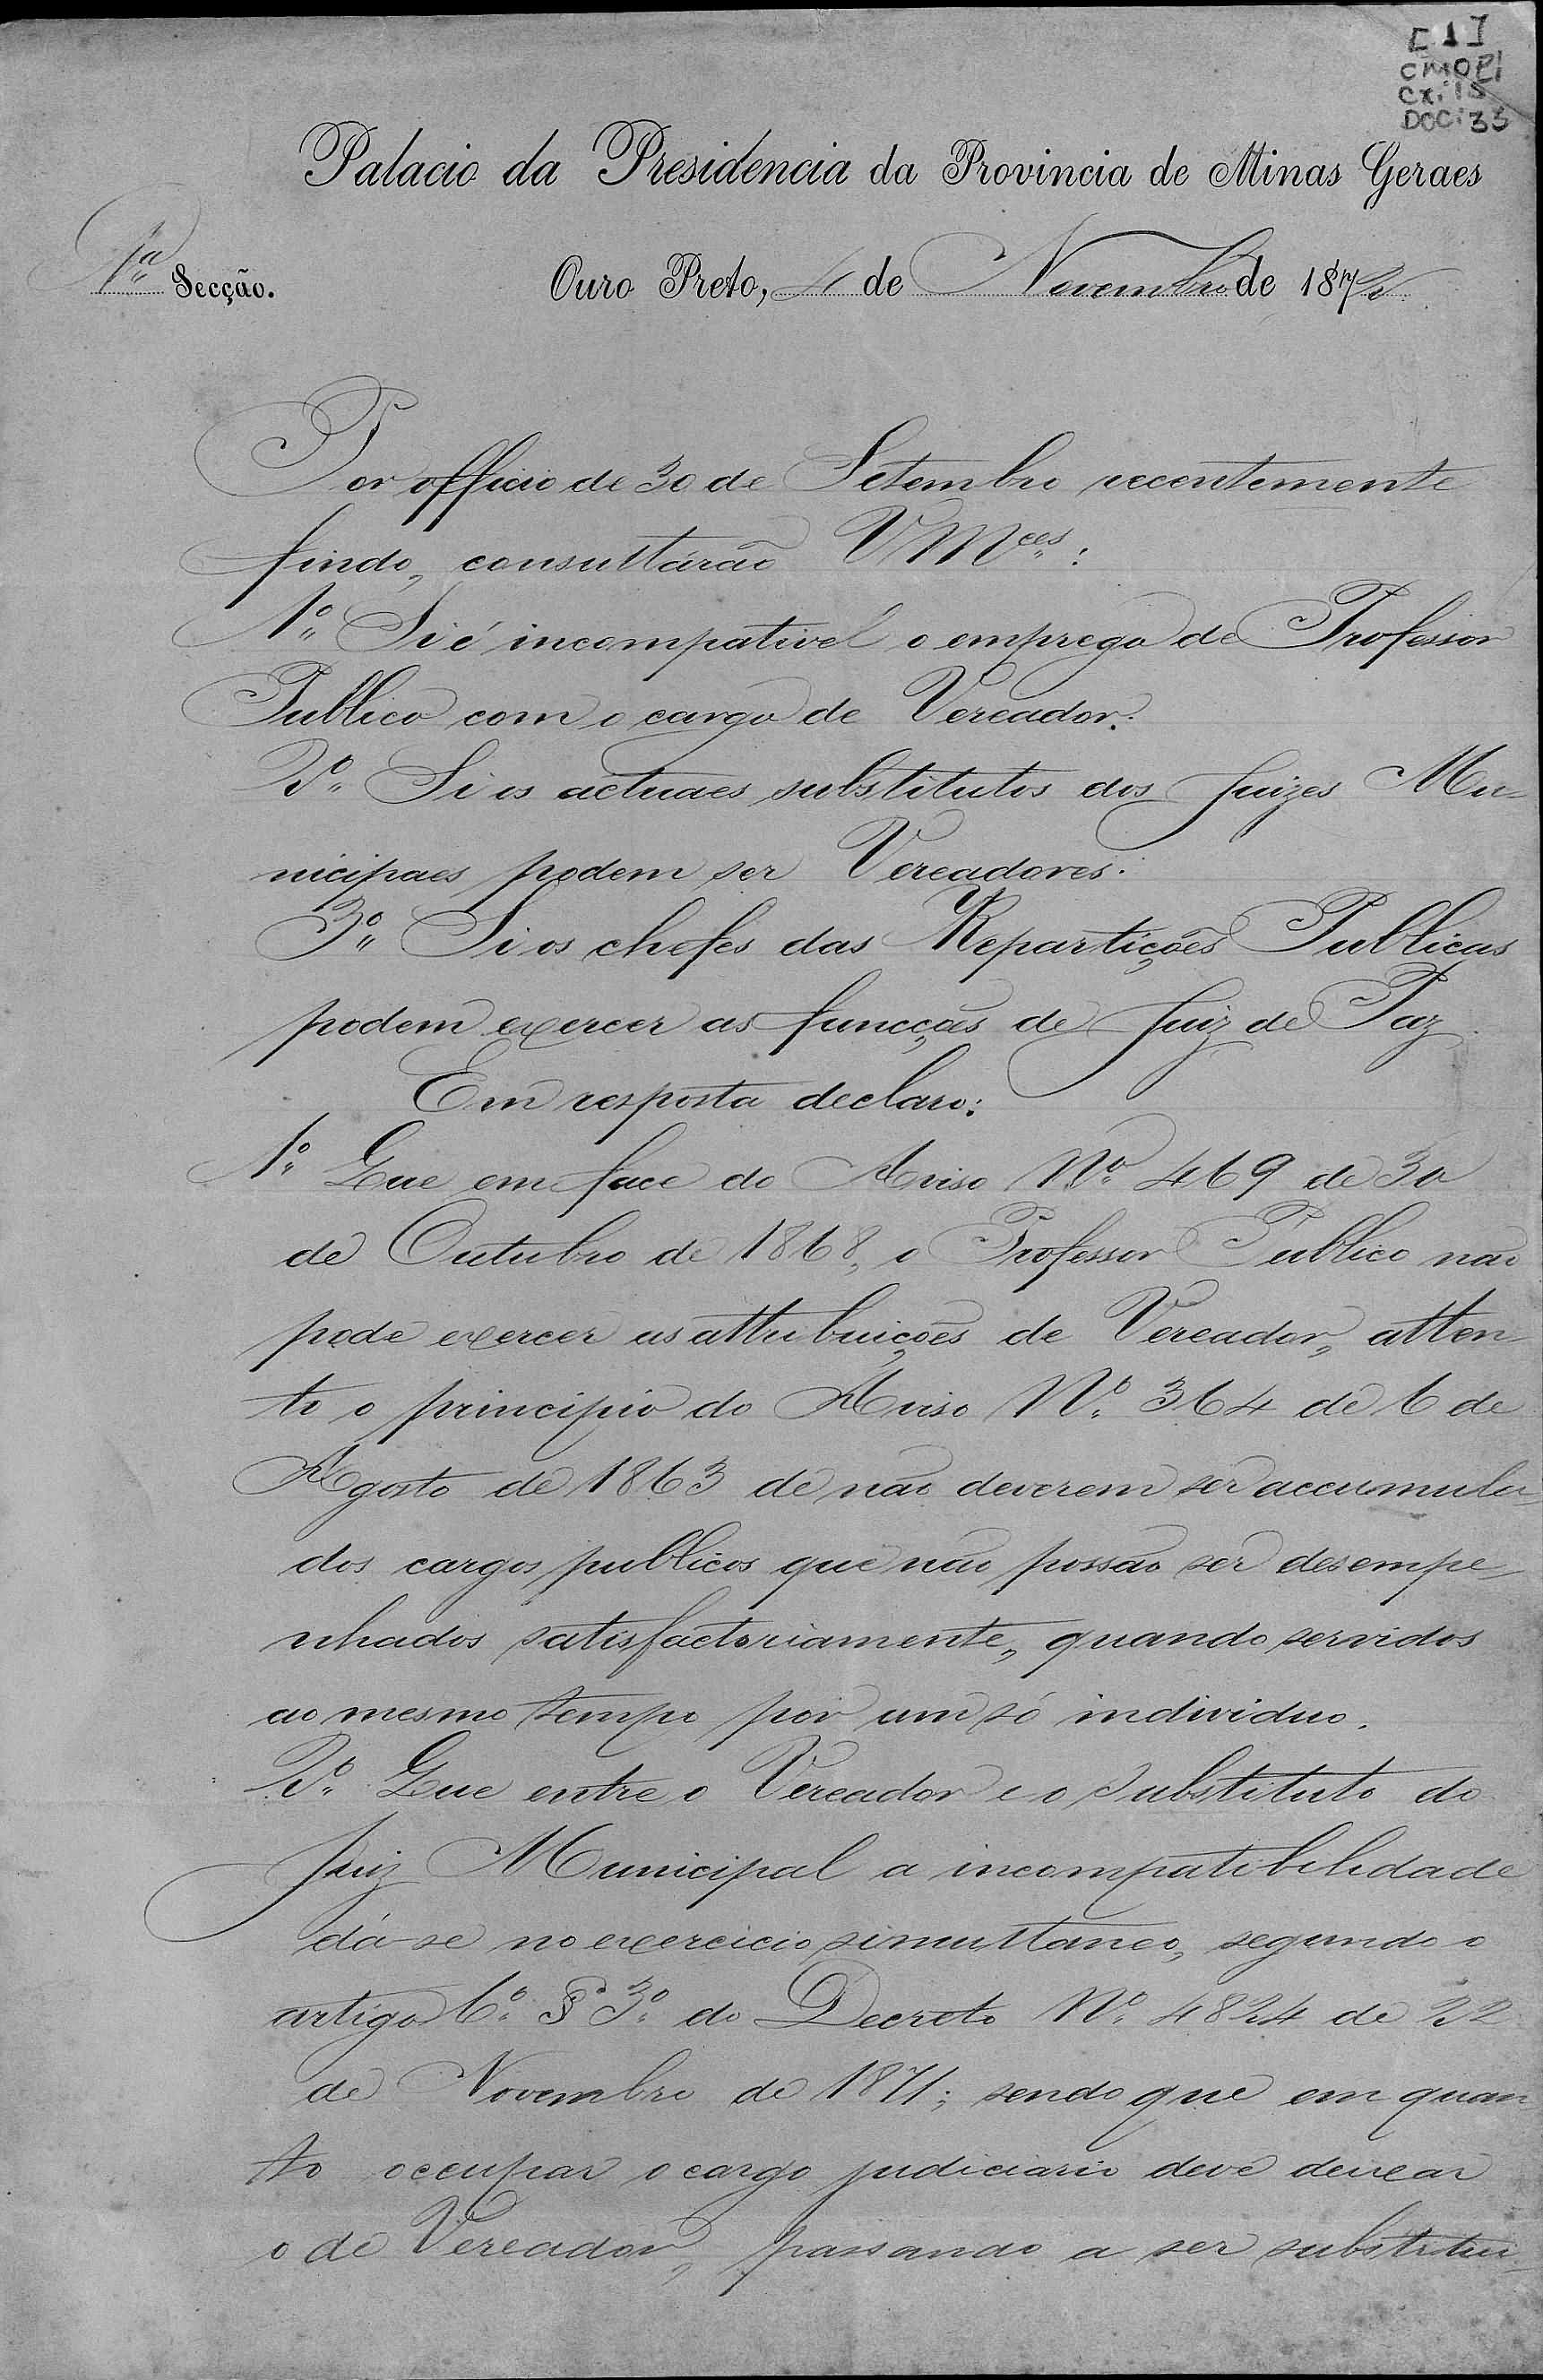 [1]
CMOP
Cx: 15
DOC: 33
Palacio da Presidencia da Provincia de Minas Geraes
1ª Secção.
Ouro Preto, 4 de Novembro de 1872
Por officio de 30 de Setembro recentemente
findo, consultárão VMces:
1º Si é incompativel o emprego de Professor
Publico com o cargo de Vereador.
2º Si os actuaes substitutos dos Juizes Mu-
nicipaes podem ser Vereadores.
3º Si os chefes das Repartições Publicas
podem exercer as funcções de Juiz de Paz.
Em resposta declaro:
1º Que em face do Aviso Nº 469 de 30
de Outubro de 1868, o Professor Publico não
pode exercer as attribuições de Vereador, atten-
to o principio do Aviso Nº 364 de 6 de
Agosto de 1863 de não deverem ser accumula-
dos cargos publicos que não possão ser desempe-
nhados satisfactoriamente, quando servidos
ao mesmo tempo por um só individuo.
2º Que entre o Vereador e o Substituto do
Juiz Municipal a incompatibilidade
dá-se no exercicio simultaneo, segundo o
artigo 6º § 3º do Decreto Nº 4824 de 22
de Novembro de 1871; sendo que em quan-
to occupar o cargo judiciario deve deixar
o de Vereador, passando a ser substitui-